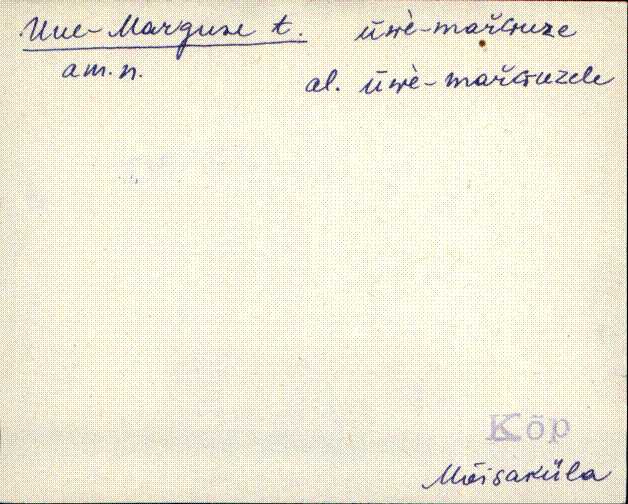 Uue-Marguse t. ūwè-mar̆ɢuze
am. n. al. ūwè-mar̆ɢuzele
Kõp
Mõisaküla